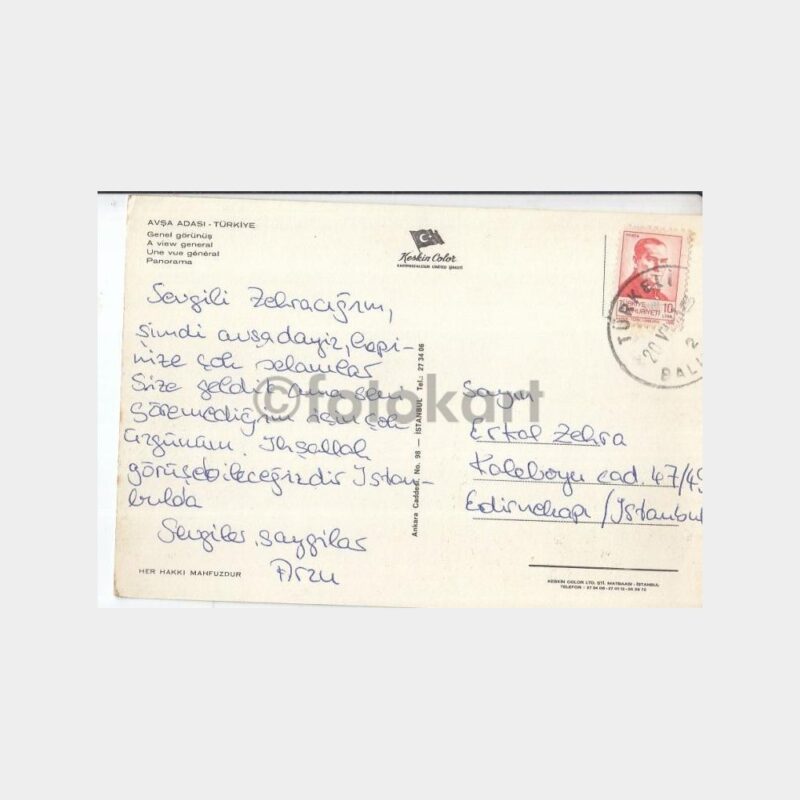 AVŞA ADASI - TÜRKİYE
Genel görünüş
A view general
Une vue général
Panorama
Keskin Color
Sevgili Zehracığım,
şimdi avşadayız, hepi-
nize çok selamlar
Size geldik ama seni
göremediğim için çok
üzgünüm. İhşallah
görüşebileceğizdir İstan-
bulda
Sevgiler, saygılar
Arzu
HER HAKKI MAHFUZDUR
Ankara Caddesi, No. 98 — İSTANBUL Tel.: 27 34 06
©fotokart
TÜRKİYE
10
TÜRKELİ
20
2
BALI
Sayın
Ertal Zehra
Kaleboyu cad. 47/49
Edirnekapı / İstanbul
KESKİN COLOR LTD. ŞTİ. MATBAASI - İSTANBUL